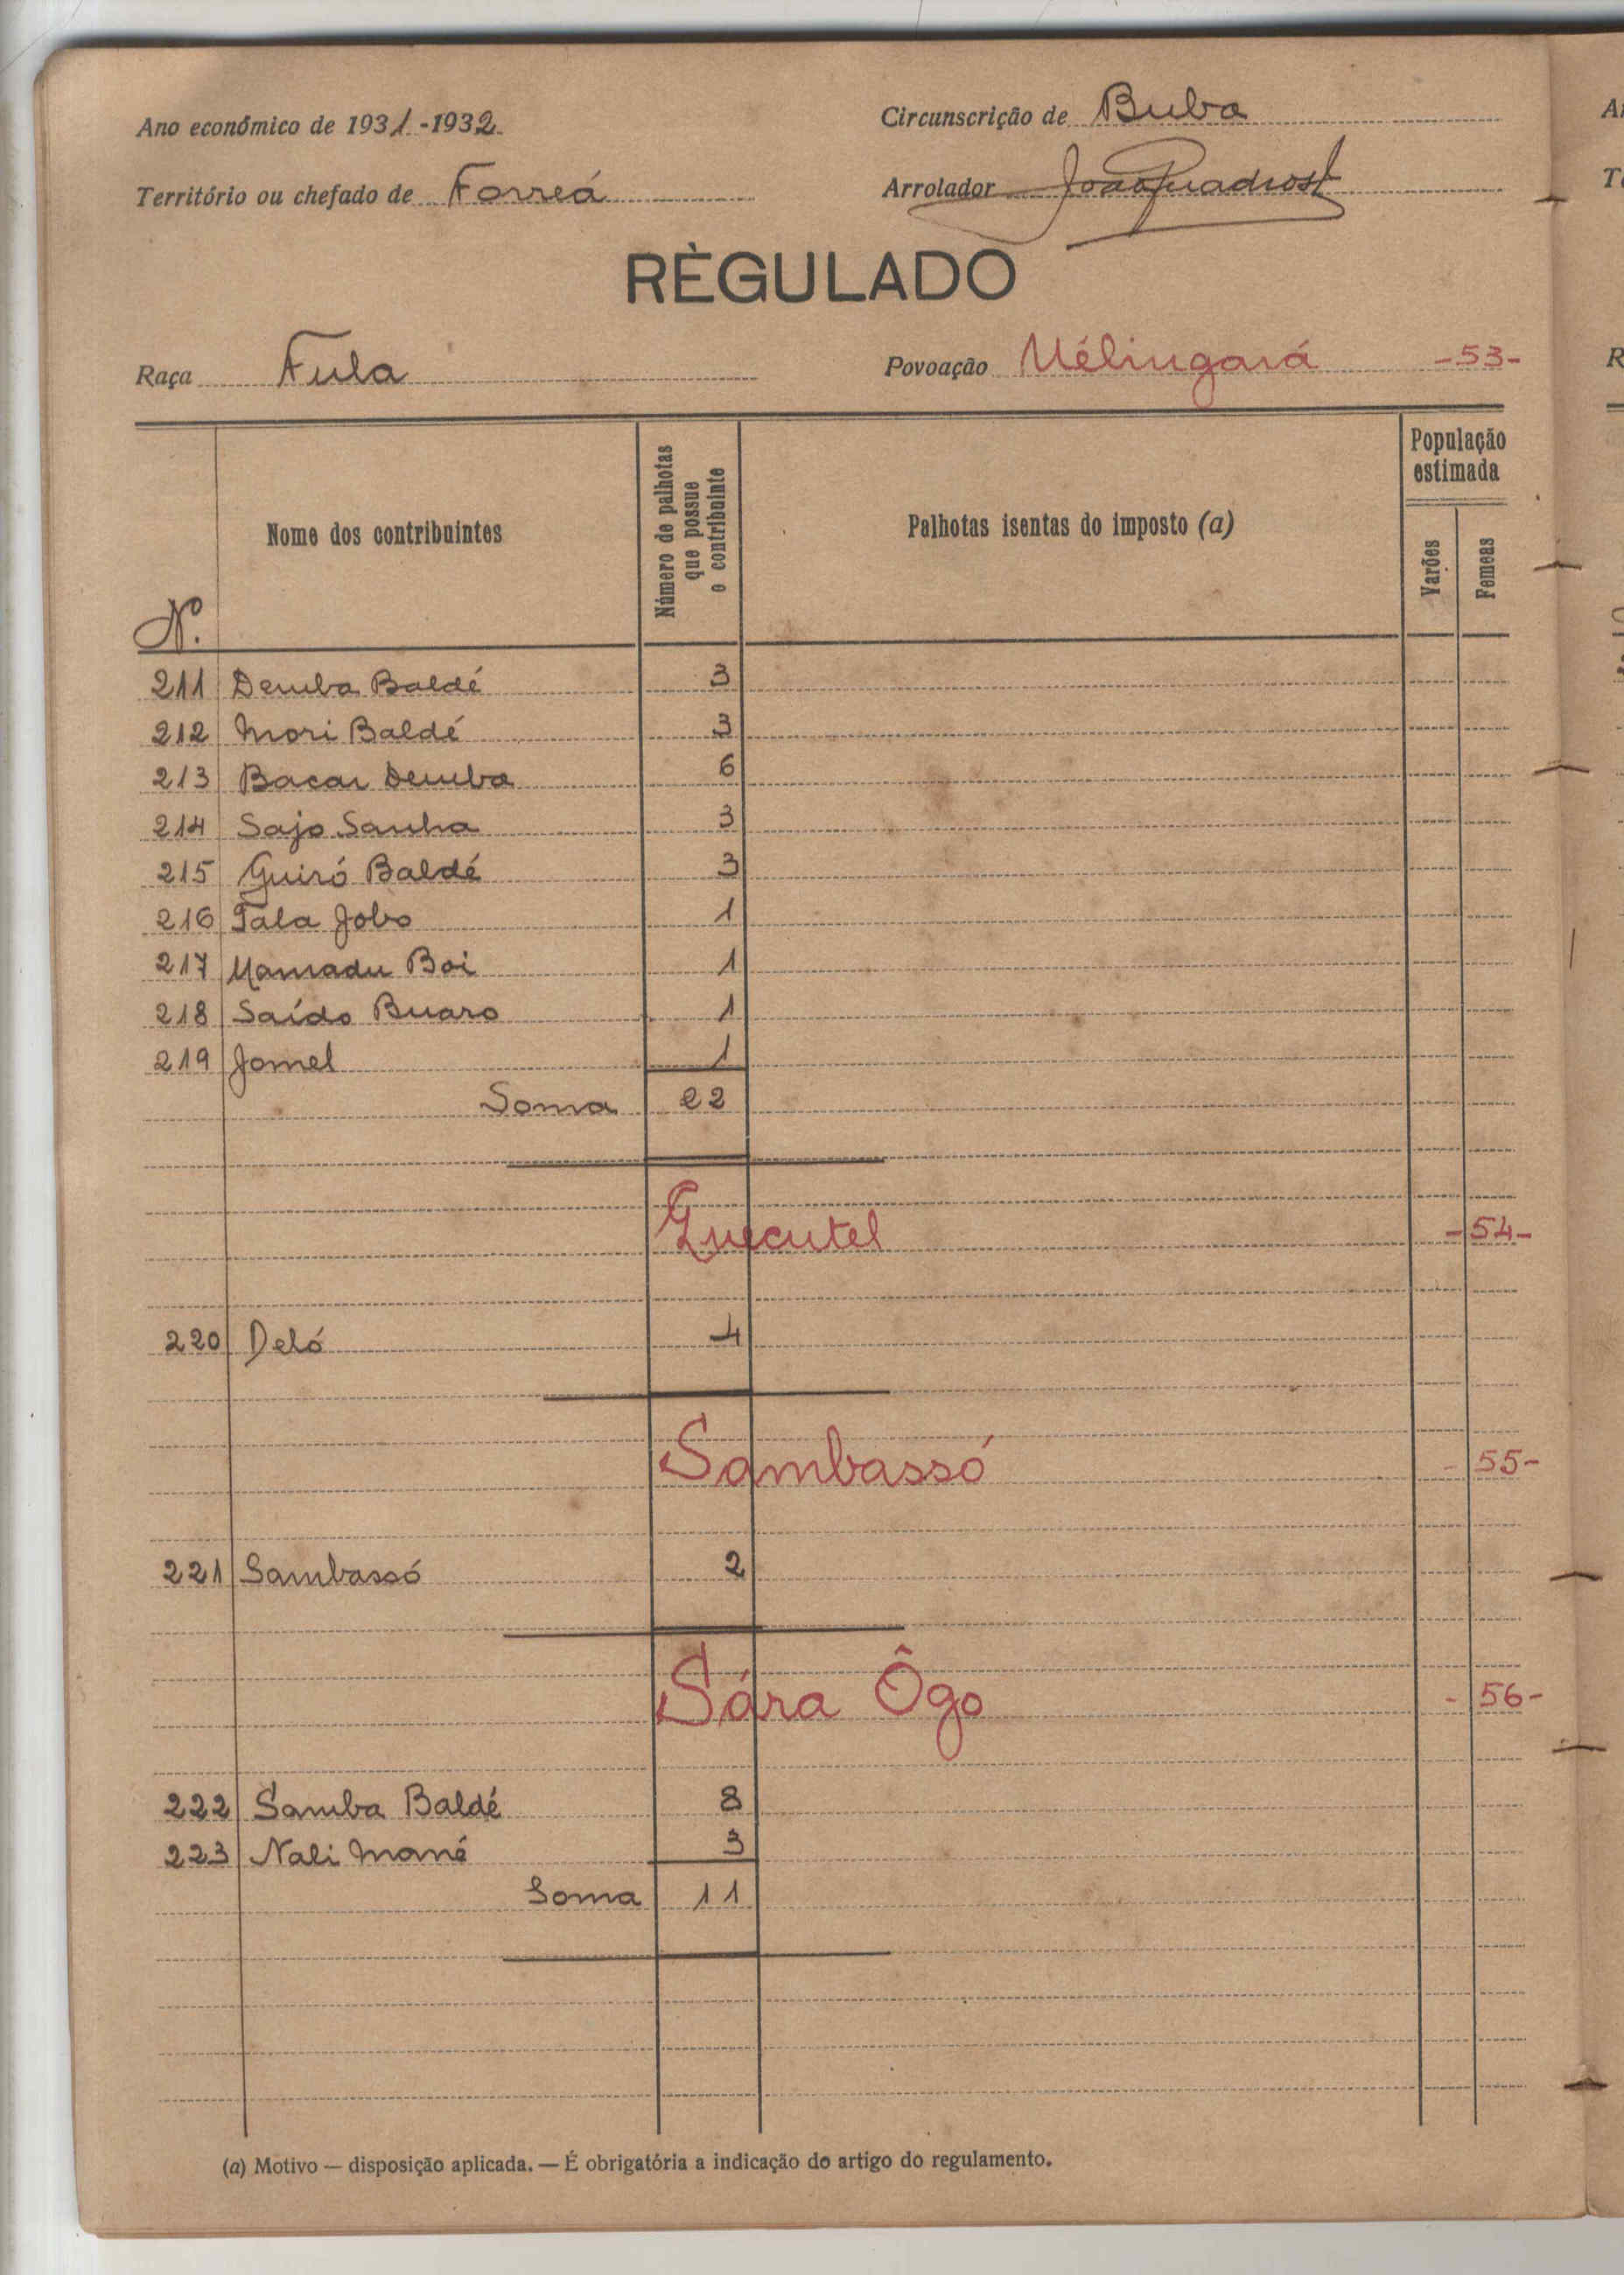 Ano económico de 1931-1932
Circunscrição de Buba
Território ou chefado de Forreá
Arrolador João Quadrost
RÈGULADO
Raça Fula
Povoação Uélingará -53-
N.º
Nome dos contribuintes
Número de palhotas que possue o contribuinte
Palhotas isentas do imposto (a)
População estimada
Varões
Femeas
211 Demba Baldé 3
212 Mori Baldé 3
213 Bacar Demba 6
214 Sajo Sanha 3
215 Guiró Baldé 3
216 Tala Jobo 1
217 Mamadu Boi 1
218 Saído Buaro 1
219 Jomel 1
Soma 22
Guecutel -54-
220 Deló 4
Sambassó -55-
221 Sambassó 2
Sára Ôgo -56-
222 Samba Baldé 8
223 Nali Mané 3
Soma 11
(a) Motivo — disposição aplicada. — É obrigatória a indicação do artigo do regulamento.